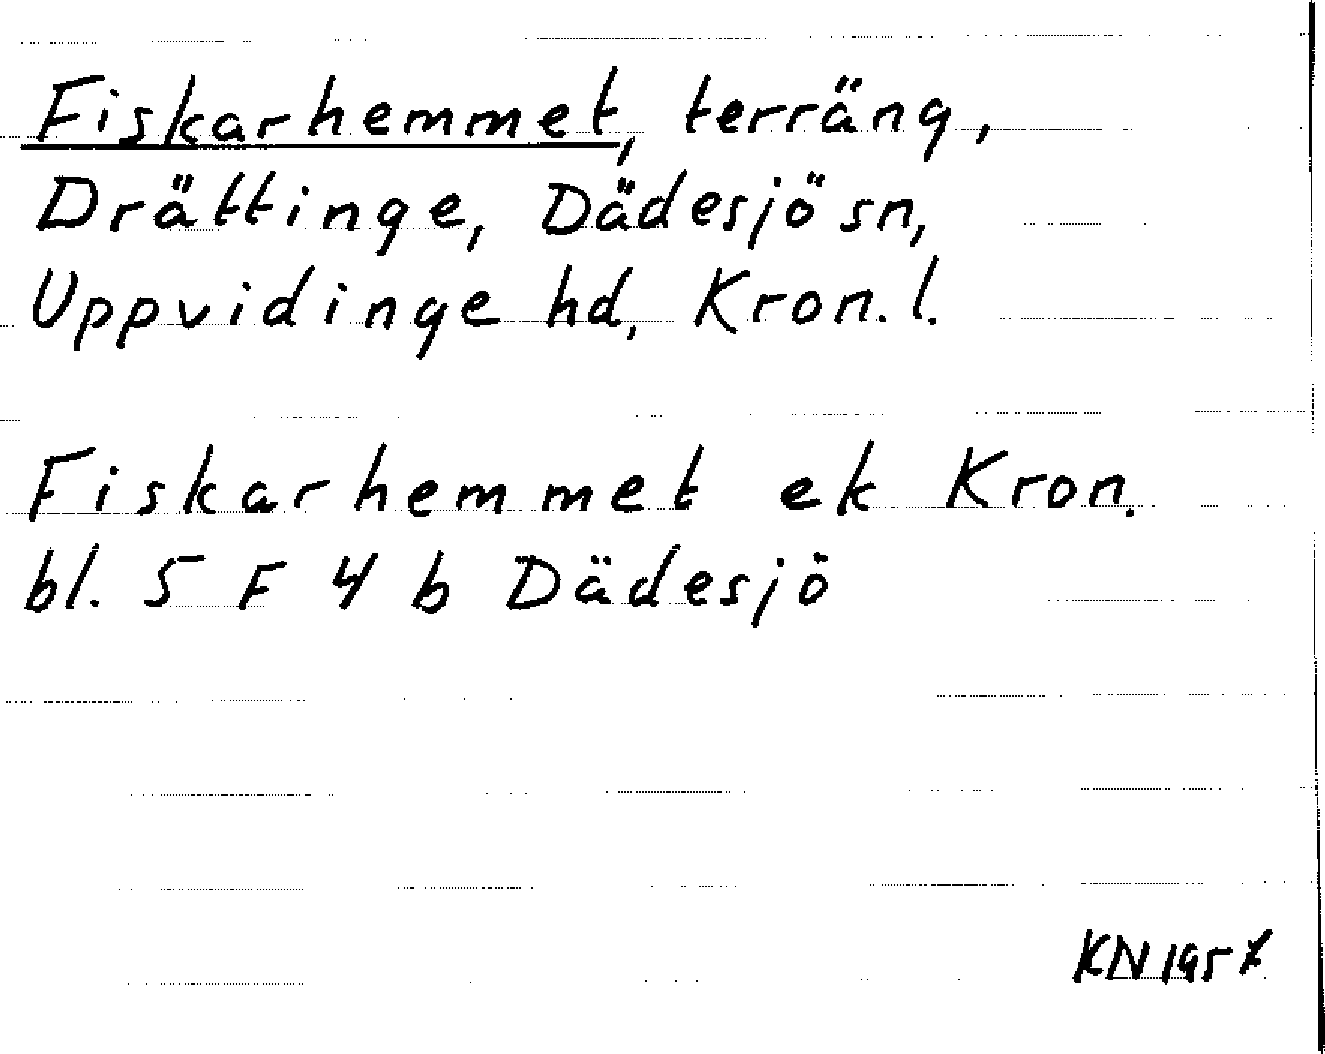 Fiskarhemmet, terräng,
Drättinge, Dädesjö sn,
Uppvidinge hd, Kron. l.
Fiskarhemmet ek Kron.
bl. 5 F 4 b Dädesjö
KN 1957